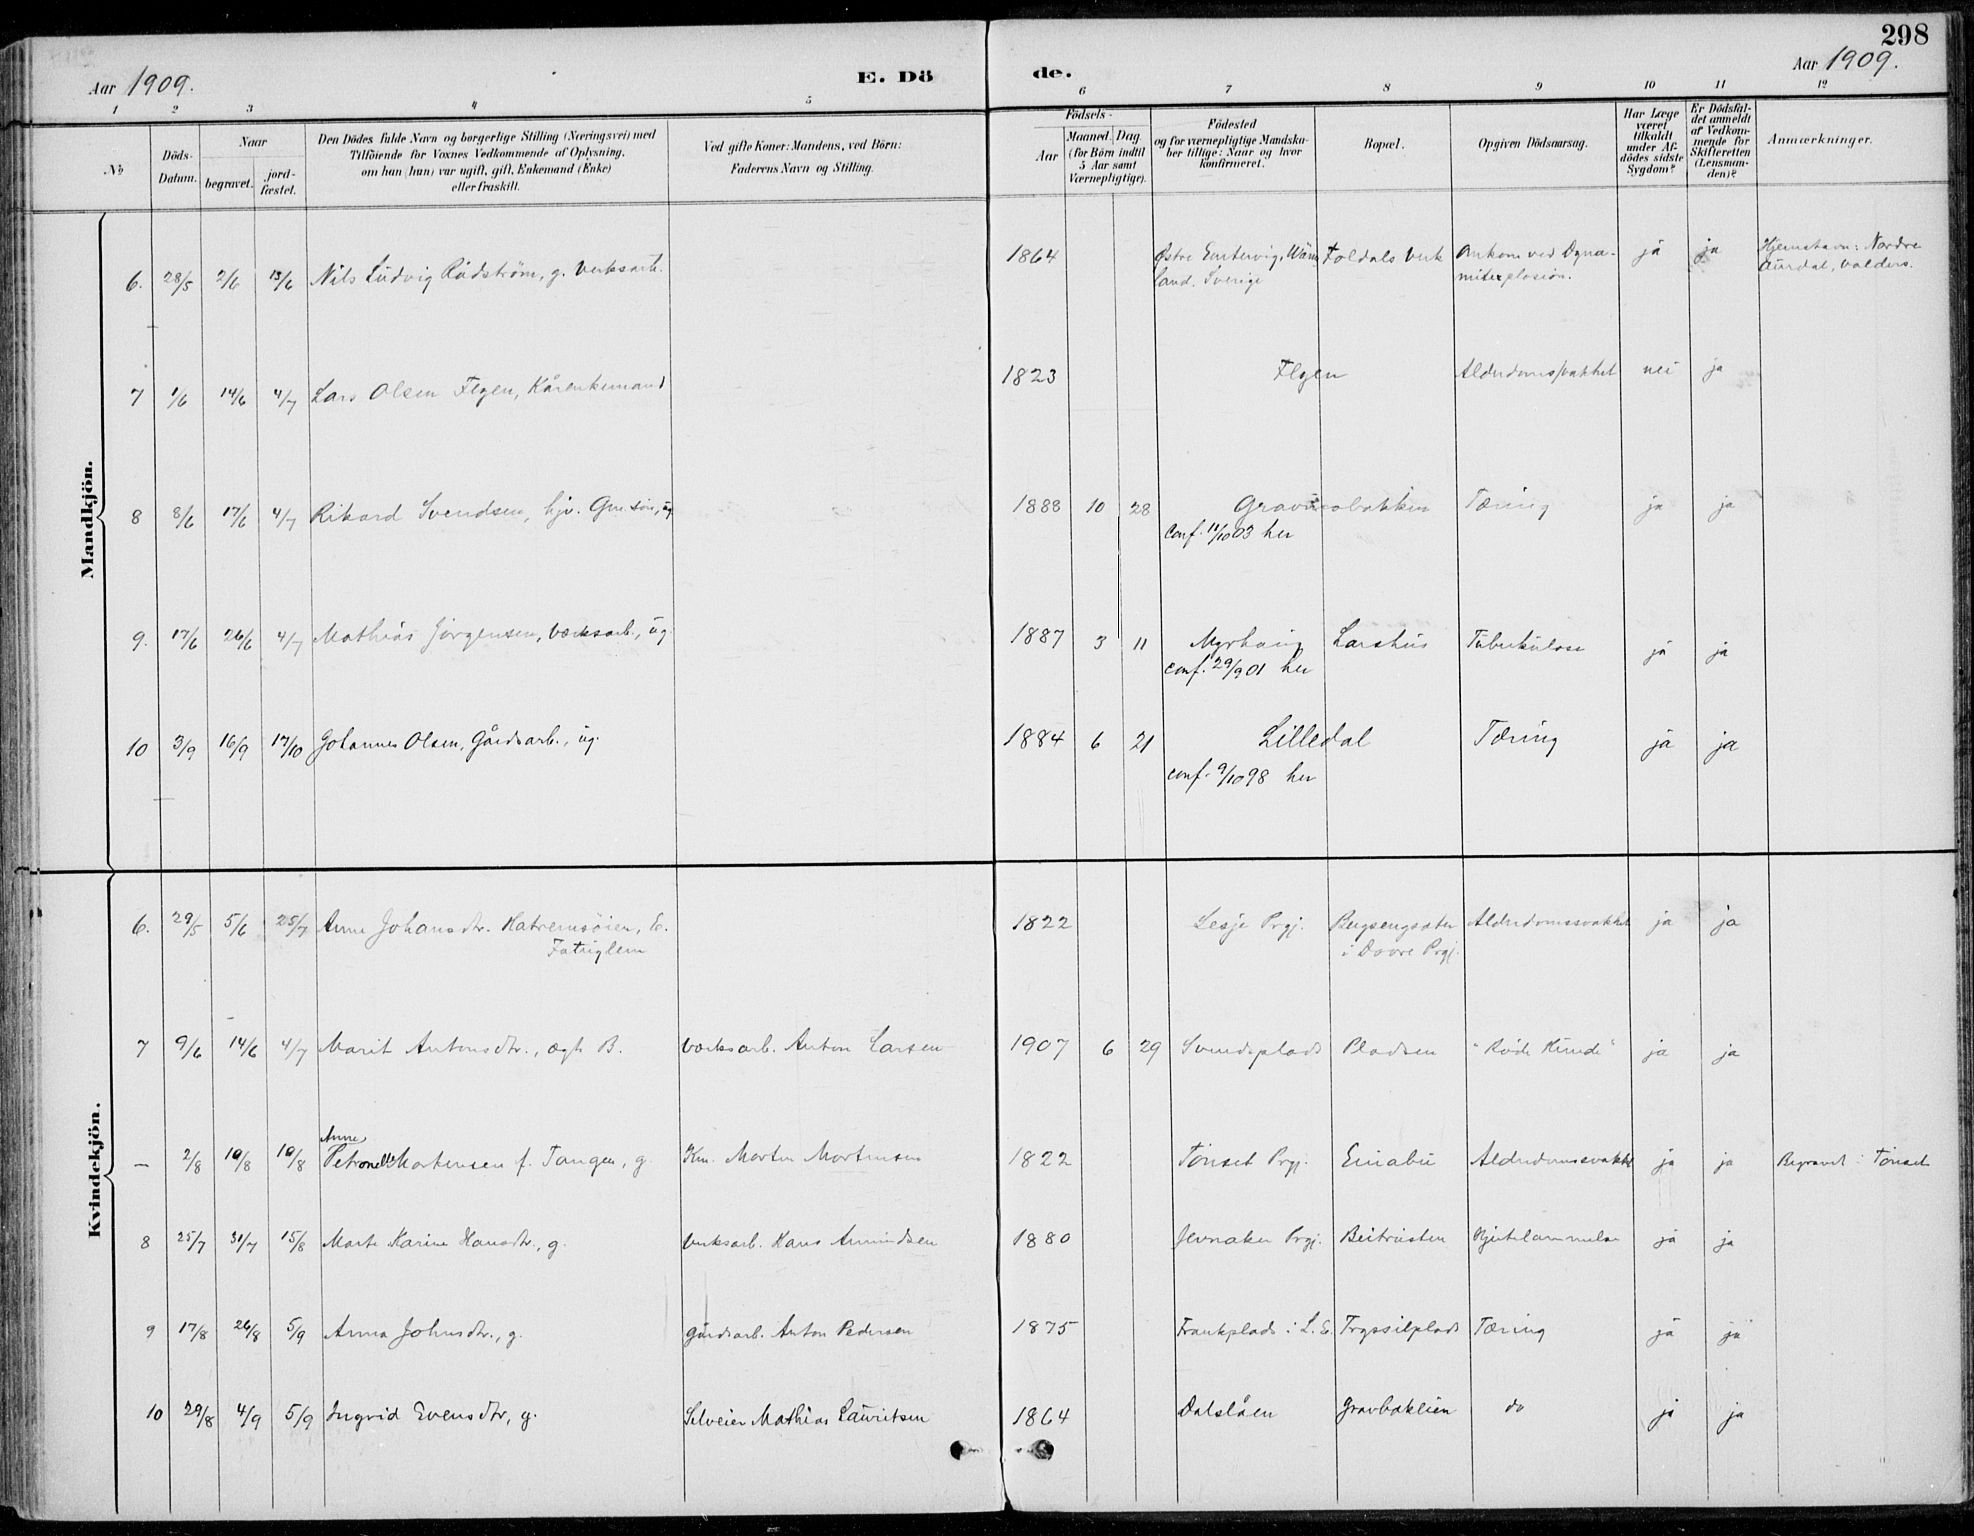 298
Aar 1909.
E. Dö
de.
Aar 1909.
1 2 3 4 5 6 7 8 9 10 11 12
No
Döds-
Datum.
Naar
begravet.
jord-
fæstet.
Den Dödes fulde Navn og borgerlige Stilling (Næringsvei) med
Tilföiende for Voxnes Vedkommende af Oplysning,
om han (hun) var ugift, gift, Enkemand (Enke)
eller fraskilt.
Ved gifte Koner: Mandens, ved Börn:
Faderens Navn og Stilling.
Födsels-
Aar
Maaned. Dag
(for Börn indtil
5 Aar samt
Værnepligtige).
Födested
og for værnepligtige Mandska-
ber tillige: Naar og hvor
konfirmeret.
Bopæl.
Opgiven Dödsaarsag.
Har Læge
været
tilkaldt
under Af-
dödes sidste
Sygdom?
Er Dödsfal-
det anmeldt
af Vedkom-
mende for
Skifteretten
(Lensman-
den)?
Anmærkninger.
Mandkjön.
6. 28/5 2/6 13/6 Nils Ludvig Rådström, g. Verksarb. 1864 Østre Emtervig, Wärm- Foldals Verk Omkom ved Dyna- ja ja Hjemstavn: Nordre
land. Sverige mitexplosion. Aurdal, Valders.
7 1/6 14/6 4/7 Lars Olsen Flgen, Kårenkemand 1823 Flgen Alderdomssvakhet nei ja
8 8/6 17/6 4/7 Rikard Svendsen, hjv. Gm. søn, ug 1888 10 28 Tæring ja ja
Conf. 11/10 03 her
9. 17/6 26/6 4/7 Mathias Jørgensen, Værksarb., ug. 1887 3 11 Myrhaug Larshus Tuberkulose ja ja
conf. 29/9 01 her
10 3/9 16/9 17/10 Johannes Olsen, Gårdsarb., ug. 1884 6 21 Lilledal Tæring ja ja
conf. 9/10 98 her
Kvindekjön.
6. 29/5 5/6 25/7 Anne Johansdtr. E. 1822 Lesje Prgj. Alderdomssvakhet ja ja
Fattiglem i Dovre Prgj.
7 9/6 14/6 4/7 Marit Antonsdtr., ægte B. Værksarb. Anton Larsen 1907 6 29 Svendsplads Pladsen "Røde Hunde" ja ja
Anne
— 2/8 10/8 10/8 Petronelle Mortensen f. Tangen, g. Km. Morten Mortensen 1822 Tönset Prgj. Einabu Alderdomssvakhet ja ja Begravet i Tönset
8 25/7 31/7 15/8 Marte Karine Hansdtr., g. Verksarb. Hans Amundsen 1880 Jevnaker Prgj. Hjertelammelse ja ja
9 17/8 26/8 5/9 Anna Johnsdtr., g. gårdsarb. Anton Pedersen 1875 i L. E. Trysilplads Tæring ja ja
10 29/8 4/9 5/9 Ingrid Evensdtr, g. Selveier Mathias Lauritsen 1864 Dalslåen do ja ja